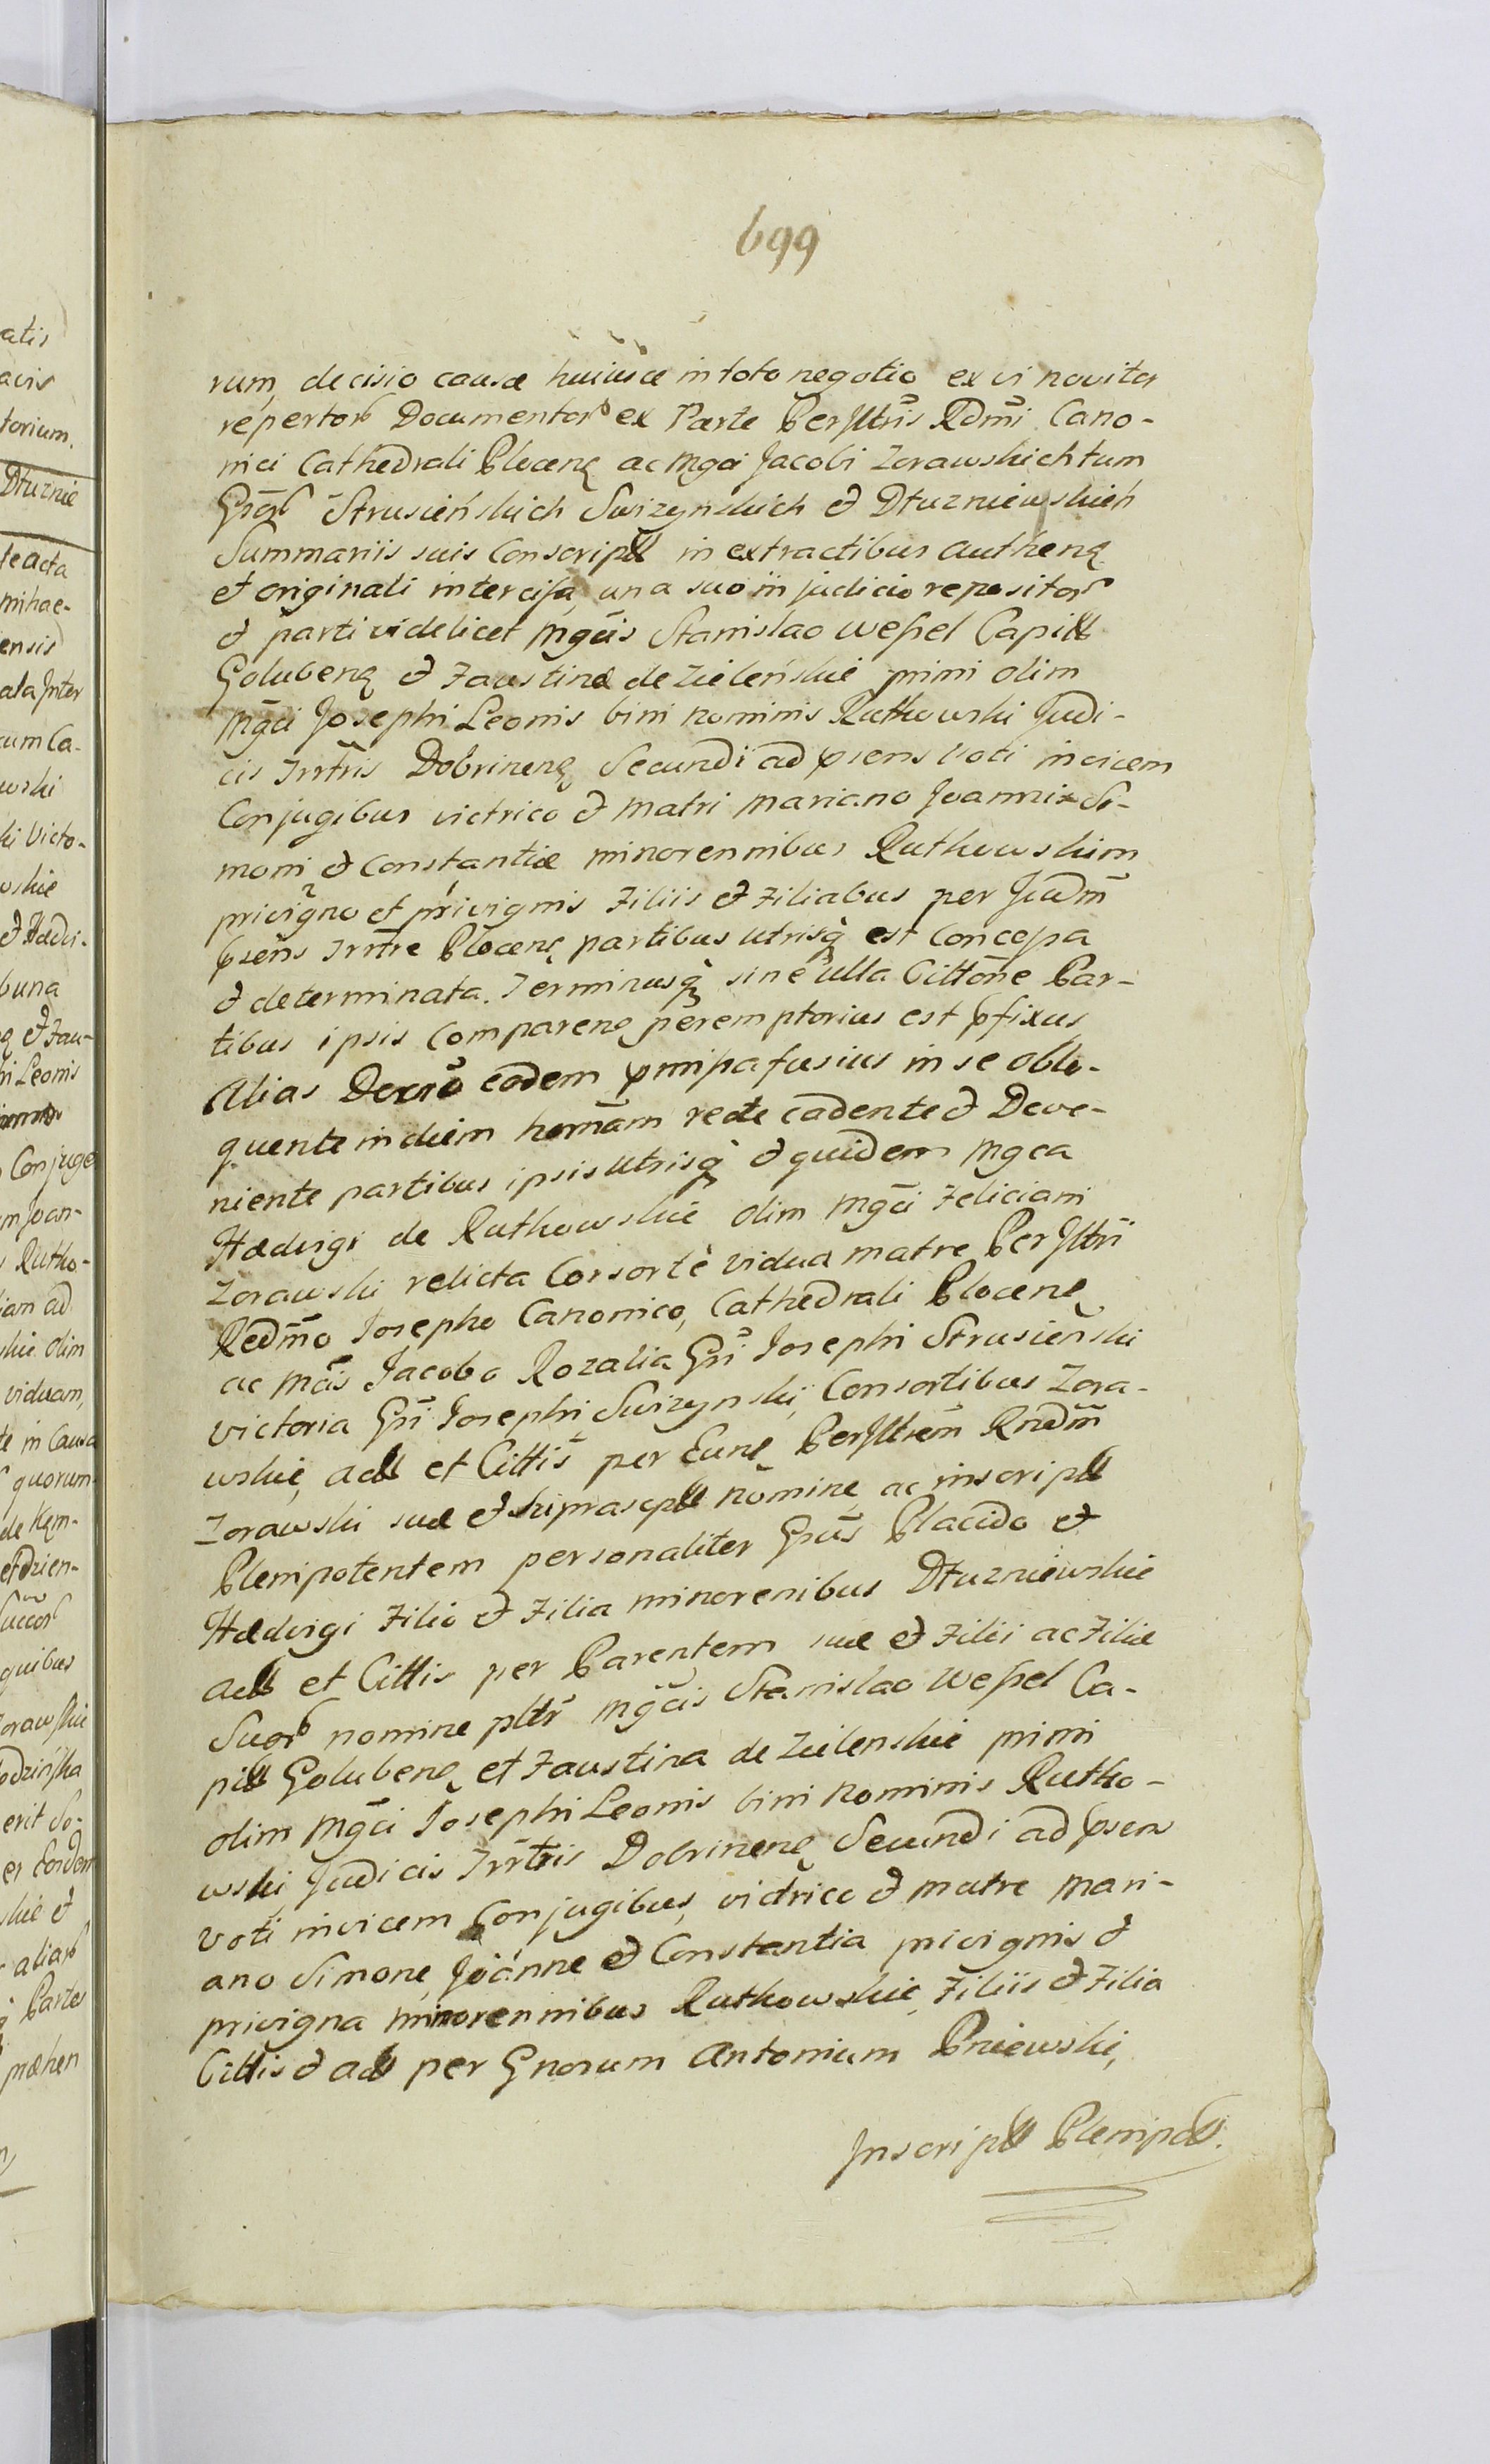 699
rum, decisio causæ huiusce in toto negotio ex vi noviter
repertor Documentor ex Parte Perjlltris Rdmi Cano-
nici Cathedrali Plocen ac Mgci Jacobi Zorawskich tum
Gnor Strusieńskich Swizynskich et Dłuzniewskich
Summariis suis Conscript in extractibus authen
et originali intercisa, una suo in judicio repositor
et parti videlicet Mgcis Stanislao Wessel Capit
Goluben et Faustinæ de Zieleńskie primi olim
Mgci Josephi Leonis bini nominis Rutkowski Judi-
cis Trrtris Dobrinen Secundi ad psens voti invicem
Conjugibus victrico et Matri Mariano Joanni Si-
moni et Constantiæ minorennibus Rutkowskim
privigno et privignis Filiis et Filiabus per Judm
psens Trrtre Plocen partibus utrisq est Concepa
et determinata. Terminusq sine ulla Cittone Par-
tibus ipsis Comparen peremptorius est pfixus
Alias Decrō eodem pmipa fusius in se oblo-
quente in diem hornam recte cadente et Deve-
niente partibus ipsis utrisq et quidem Mgca
Hædvigi de Rutkowskie olim Mgci Feliciani
Zorawski relicta Consorte vidua matre Perjlltri
Redmo Josepho Canonico, Cathedrali Plocen
ac Mcis Jacobo Rozalia Gni Josephi Strusieński
Victoria Gni Josephi Swizynski, Consortibus Zora-
wskie, act et Cittis per Eun Perjlltrem Rndm
Zorawski suæ et supra nomine ac inscript
Plenipotentem personaliter Gnis Placido et
Hædvigi Filio et Filia minorenibus Dłuzniewskie
act et Cittis per Parentem suæ et Filii ac Filiæ
Suor nomine pltr Mgcis Stanislao Wessel Ca-
pit Goluben et Faustina de Zielenskie primi
olim Mgci Josephi Leonis bini nominis Rutko-
wski Judicis Trrtris Dobrinen Secundi ad psens
voti invicem Conjugibus, victrico et Matre Mari-
ano Simone, Joanne et Constantia privignis et
privigna minorennibus Rutkowskie, Filiis et Filia
Cittis et act per Gnorum Antonium Pniewski,
Inscript Plenipot.